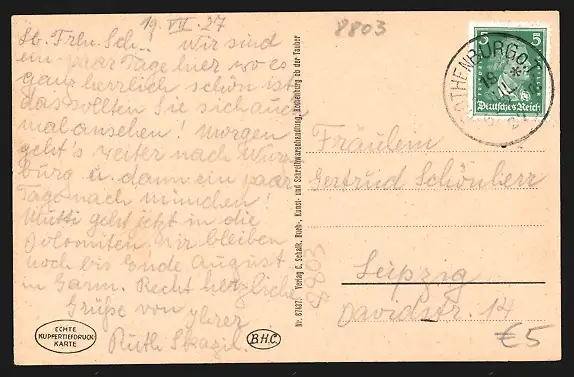 19. VII. 27
Lb. Frln. Sch.! Wir sind
ein paar Tage hier wo es
ganz herrlich schön ist
das sollten Sie sich auch
mal ansehen! Morgen
geht's weiter nach Würz
burg u. dann ein paar
Tage nach München!
Mutti geht jetzt in die
Dolomiten, wir bleiben
noch bis Ende August
in Garm. Recht herzliche
Grüße von Ihrer
Ruth
ECHTE
KUPFERTIEFDRUCK
KARTE
B.H.C.
Nr. 67437. Verlag C. Schalk, Buch-, Kunst- und Schreibwarenhandlung, Rothenburg ob der Tauber
8803
8803
5 5
Deutsches Reich
ROTHENBURG o. T.
Fräulein
Gertrud Schönherr
Leipzig
Davidstr. 14
€5